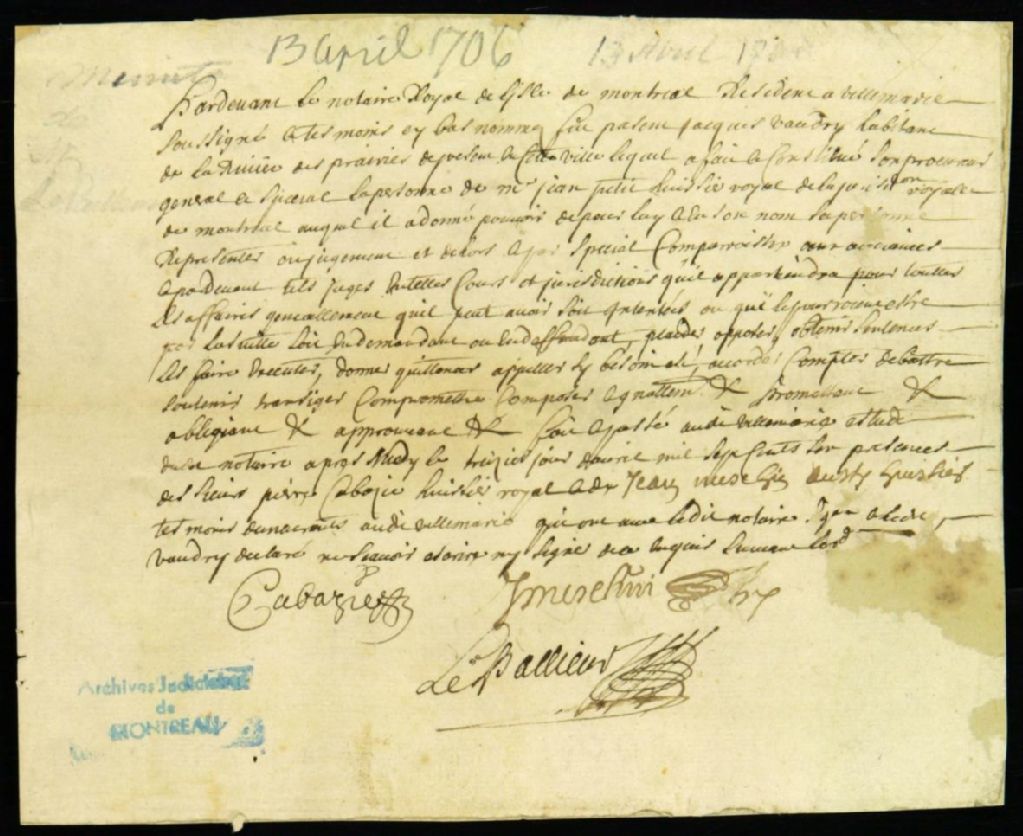 13 april 1706
13 Avril 17
Minute
de
Mr
Pardevant le notaire Royal de lisle de montreal Residene a villemarie
soussigné & tesmoins cy bas nommez fut pnt Jacques vaudry habitant
de la Riviere des prairies de present en cette ville lequel a fait & constitué son procureur
general & special la personne de mr jean petit huissier royal de la jurisdon royalle
de montreal auquel il a donné pouvoir de pour luy & en son nom sa personne
Representer en jugement et dehors & par special Comparoistre aux
& pardevant tels juges & telles Cours et jurisdictions quil appartiendra pour touttes
les affaires generallement quil peut avoir soit Intentés ou quil
par la suitte soit en demandant ou en deffendant, plaider, opposer, obtenir sentences
les faire executer, donner quittances appeller sy besoin est, accorder Comptes debattre
soutenir transiger Compromettre Composer & & Promettant &
obligeant & approuvant & fait & passé audit villemarie estude
dudit notaire apres midy le treizie jour davril mil sept Cents six presences
des sieurs pierre Cabazié huissier royal & de Jean meschin aussy huissier
tesmoins demeurants audit villemarie qui ont avec ledit notaire signé a led
vaudry declaré ne scavoir escrire ny signer de ce enquis suivant lord
Cabazie
J meschin
Le Pallieur
Archives Judiciaires
de
MONTREAL